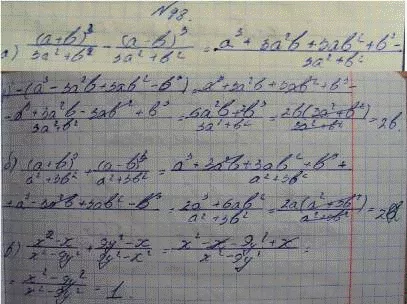 №98.
а) (a+b)³/3a²+b² - (a-b)³/3a²+b² = a³+3a²b+3ab²+b³-/3a²+b²
-(a³-3a²b+3ab²-b³) = a³+3a²b+3ab²+b³-
-a³+3a²b-3ab²+b³/3a²+b² = 6a²b+2b³/3a²+b² = 2b(3a²+b²)/3a²+b² = 2b.
б) (a+b)³/a²+3b² + (a-b)³/a²+3b² = a³+3a²b+3ab²+b³+/a²+3b²
+a³-3a²b+3ab²-b³ = 2a³+6ab²/a²+3b² = 2a(a²+3b²)/a²+3b² = 2a
в) x²-x/x²-9y² + 9y²-x/9y²-x² = x²-x-9y²+x/x²-9y² =
= x²-9y²/x²-9y² = 1.